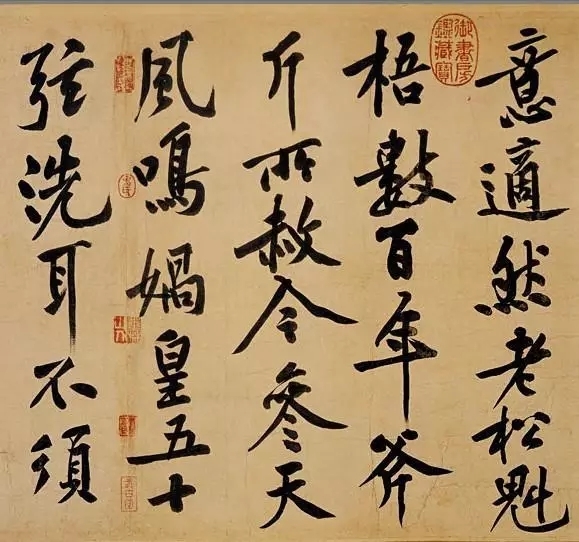 意適然老松魁
御書房鑑藏寶
梧數百年斧
斤所赦今參天
風鳴媧皇五十
弦洗耳不須